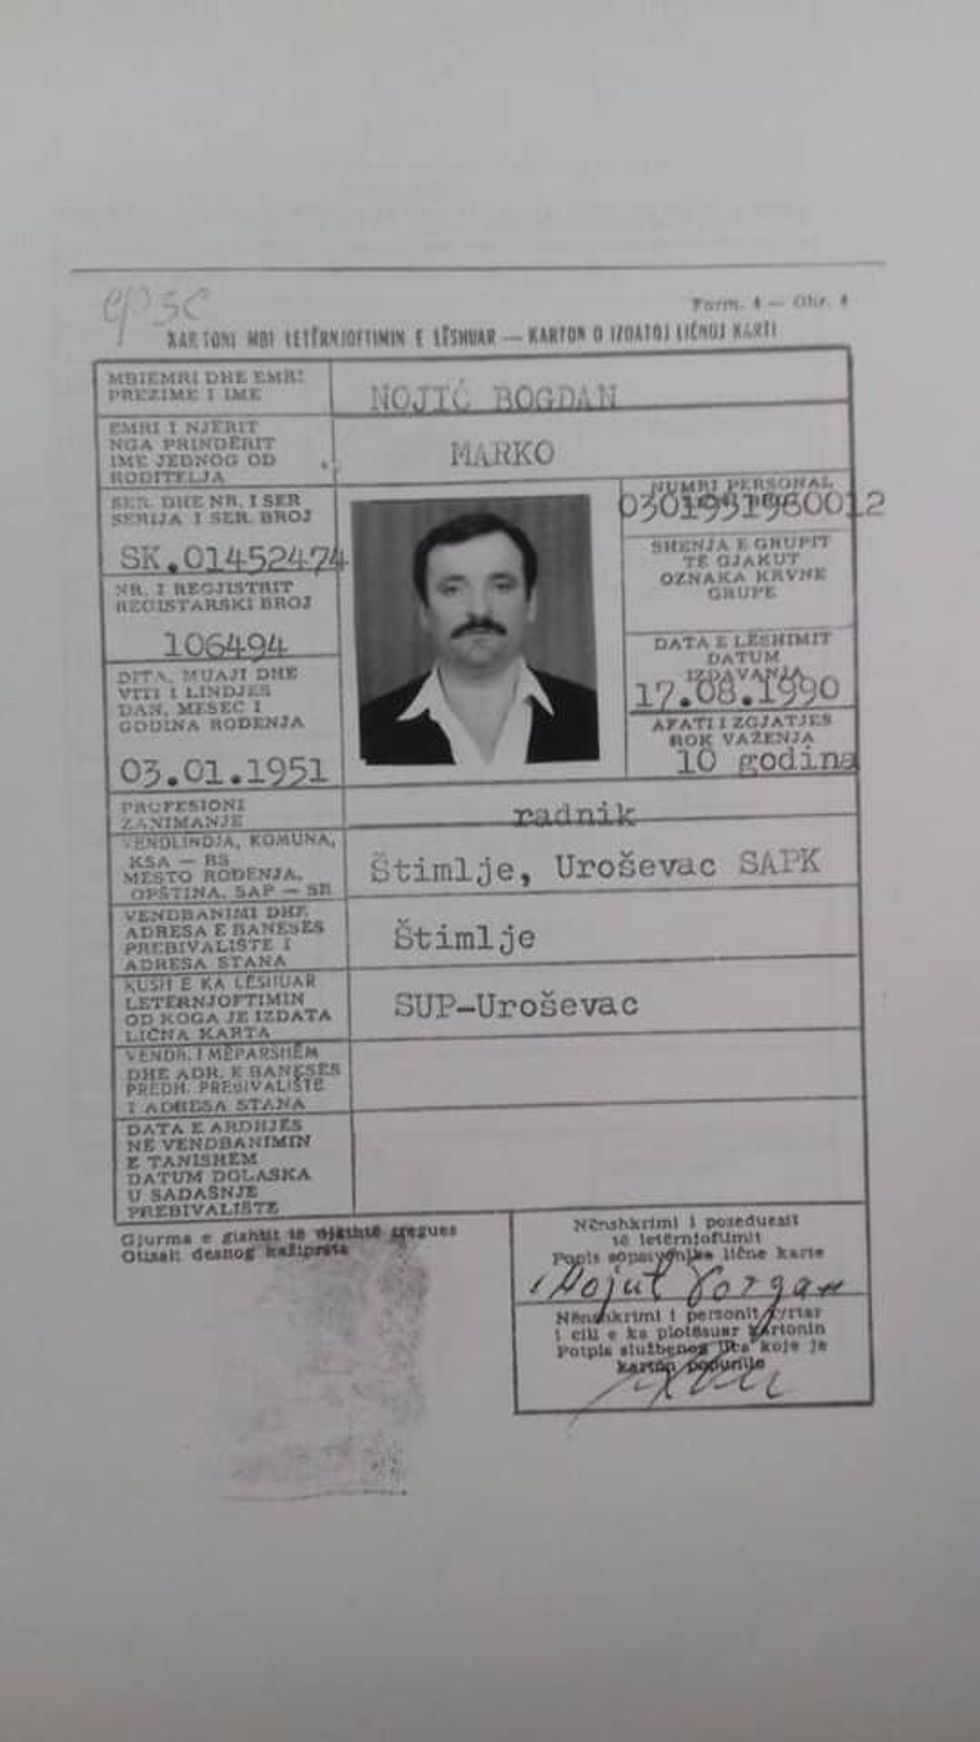 Form. 4
KARTONI MBI LETËRNJOFTIMIN E LËSHUAR — KARTON O IZDATOJ LIČNOJ KARTI
MBIEMRI DHE EMRI
PREZIME I IME
NOJIĆ BOGDAN
EMRI I NJERIT
NGA PRINDËRIT
IME JEDNOG OD
RODITELJA
MARKO
SER. DHE NR. I SER
SERIJA I SER. BROJ
SK.01452474
NR. I REGJISTRIT
REGISTARSKI BROJ
106494
DITA, MUAJI DHE
VITI I LINDJES
DAN, MESEC I
GODINA ROĐENJA
03.01.1951
NUMRI PERSONAL
0301951960012
SHENJA E GRUPIT
TË GJAKUT
OZNAKA KRVNE
GRUPE
DATA E LËSHIMIT
DATUM
IZDAVANJA
17.08.1990
AFATI I ZGJATJES
ROK VAŽENJA
10 godina
PROFESIONI
ZANIMANJE
radnik
VENDLINDJA, KOMUNA,
KSA — RS
MESTO ROĐENJA,
OPŠTINA, SAP — SR
Štimlje, Uroševac SAPK
VENDBANIMI DHE
ADRESA E BANESËS
PREBIVALIŠTE I
ADRESA STANA
Štimlje
KUSH E KA LËSHUAR
LETËRNJOFTIMIN
OD KOGA JE IZDATA
LIČNA KARTA
SUP-Uroševac
VENDB. I MËPARSHËM
DHE ADR. E BANESËS
PREDH. PREBIVALIŠTE
I ADRESA STANA
DATA E ARDHJES
NË VENDBANIMIN
E TANISHËM
DATUM DOLASKA
U SADAŠNJE
PREBIVALIŠTE
Gjurma e gishtit të djathtë tregues
Otisak desnog kažiprsta
Nënshkrimi i poseduesit
të letërnjoftimit
Potpis sopstvenika lične karte
Nënshkrimi i personit zyrtar
i cili e ka plotësuar kartonin
Potpis službenog lica koje je
karton popunilo